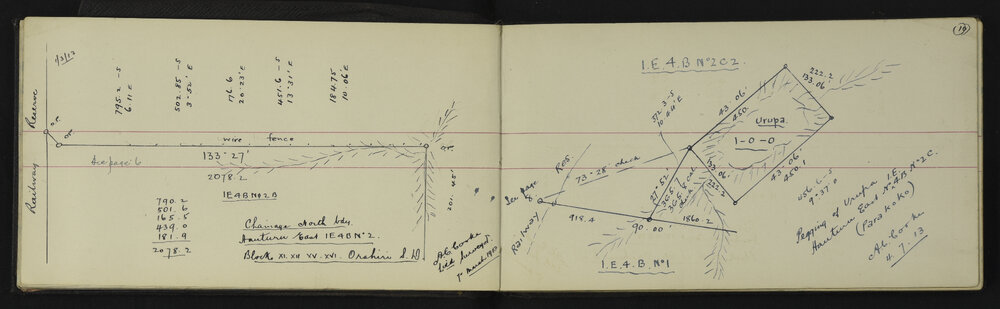 1/3/12
Railway Reserve
795.2 - S
6.11 E
502.85 - S
3° 52' E
176.6
20° 23' E
451.6 - S
13° 31' E
184.75
10.06 E
wire fence
See page 6
133° 27'
2078.2
I E 4 B No 2 B
790.2
501.6
165.5
439.0
181.9
2078.2
Chainage North bdy
Hauturu East I E 4 B No 2
Block XI. XII XV. XVI. Orahiri S.D
201.45'
A.G. Cooke
Lic'd Surveyor
March
19
I.E.4.B No 2 C 2.
222.2
133° 06'
43° 06'
450.
572.3 - S
10.44' E
Urupa
1-0-0
Res
73° 28' check
See page
8
133° 06'
222.2
43° 06'
450.1
27° 52'
365.
Railway
918.4
90° 00'
1860.2
I.E.4.B No 1
456.6 - S
9° 37.0
Pegging of Urupa I.E.
Hauturu East No 4 B No 2 C.
(Parakoko)
A.G. Cooke
4.7.13